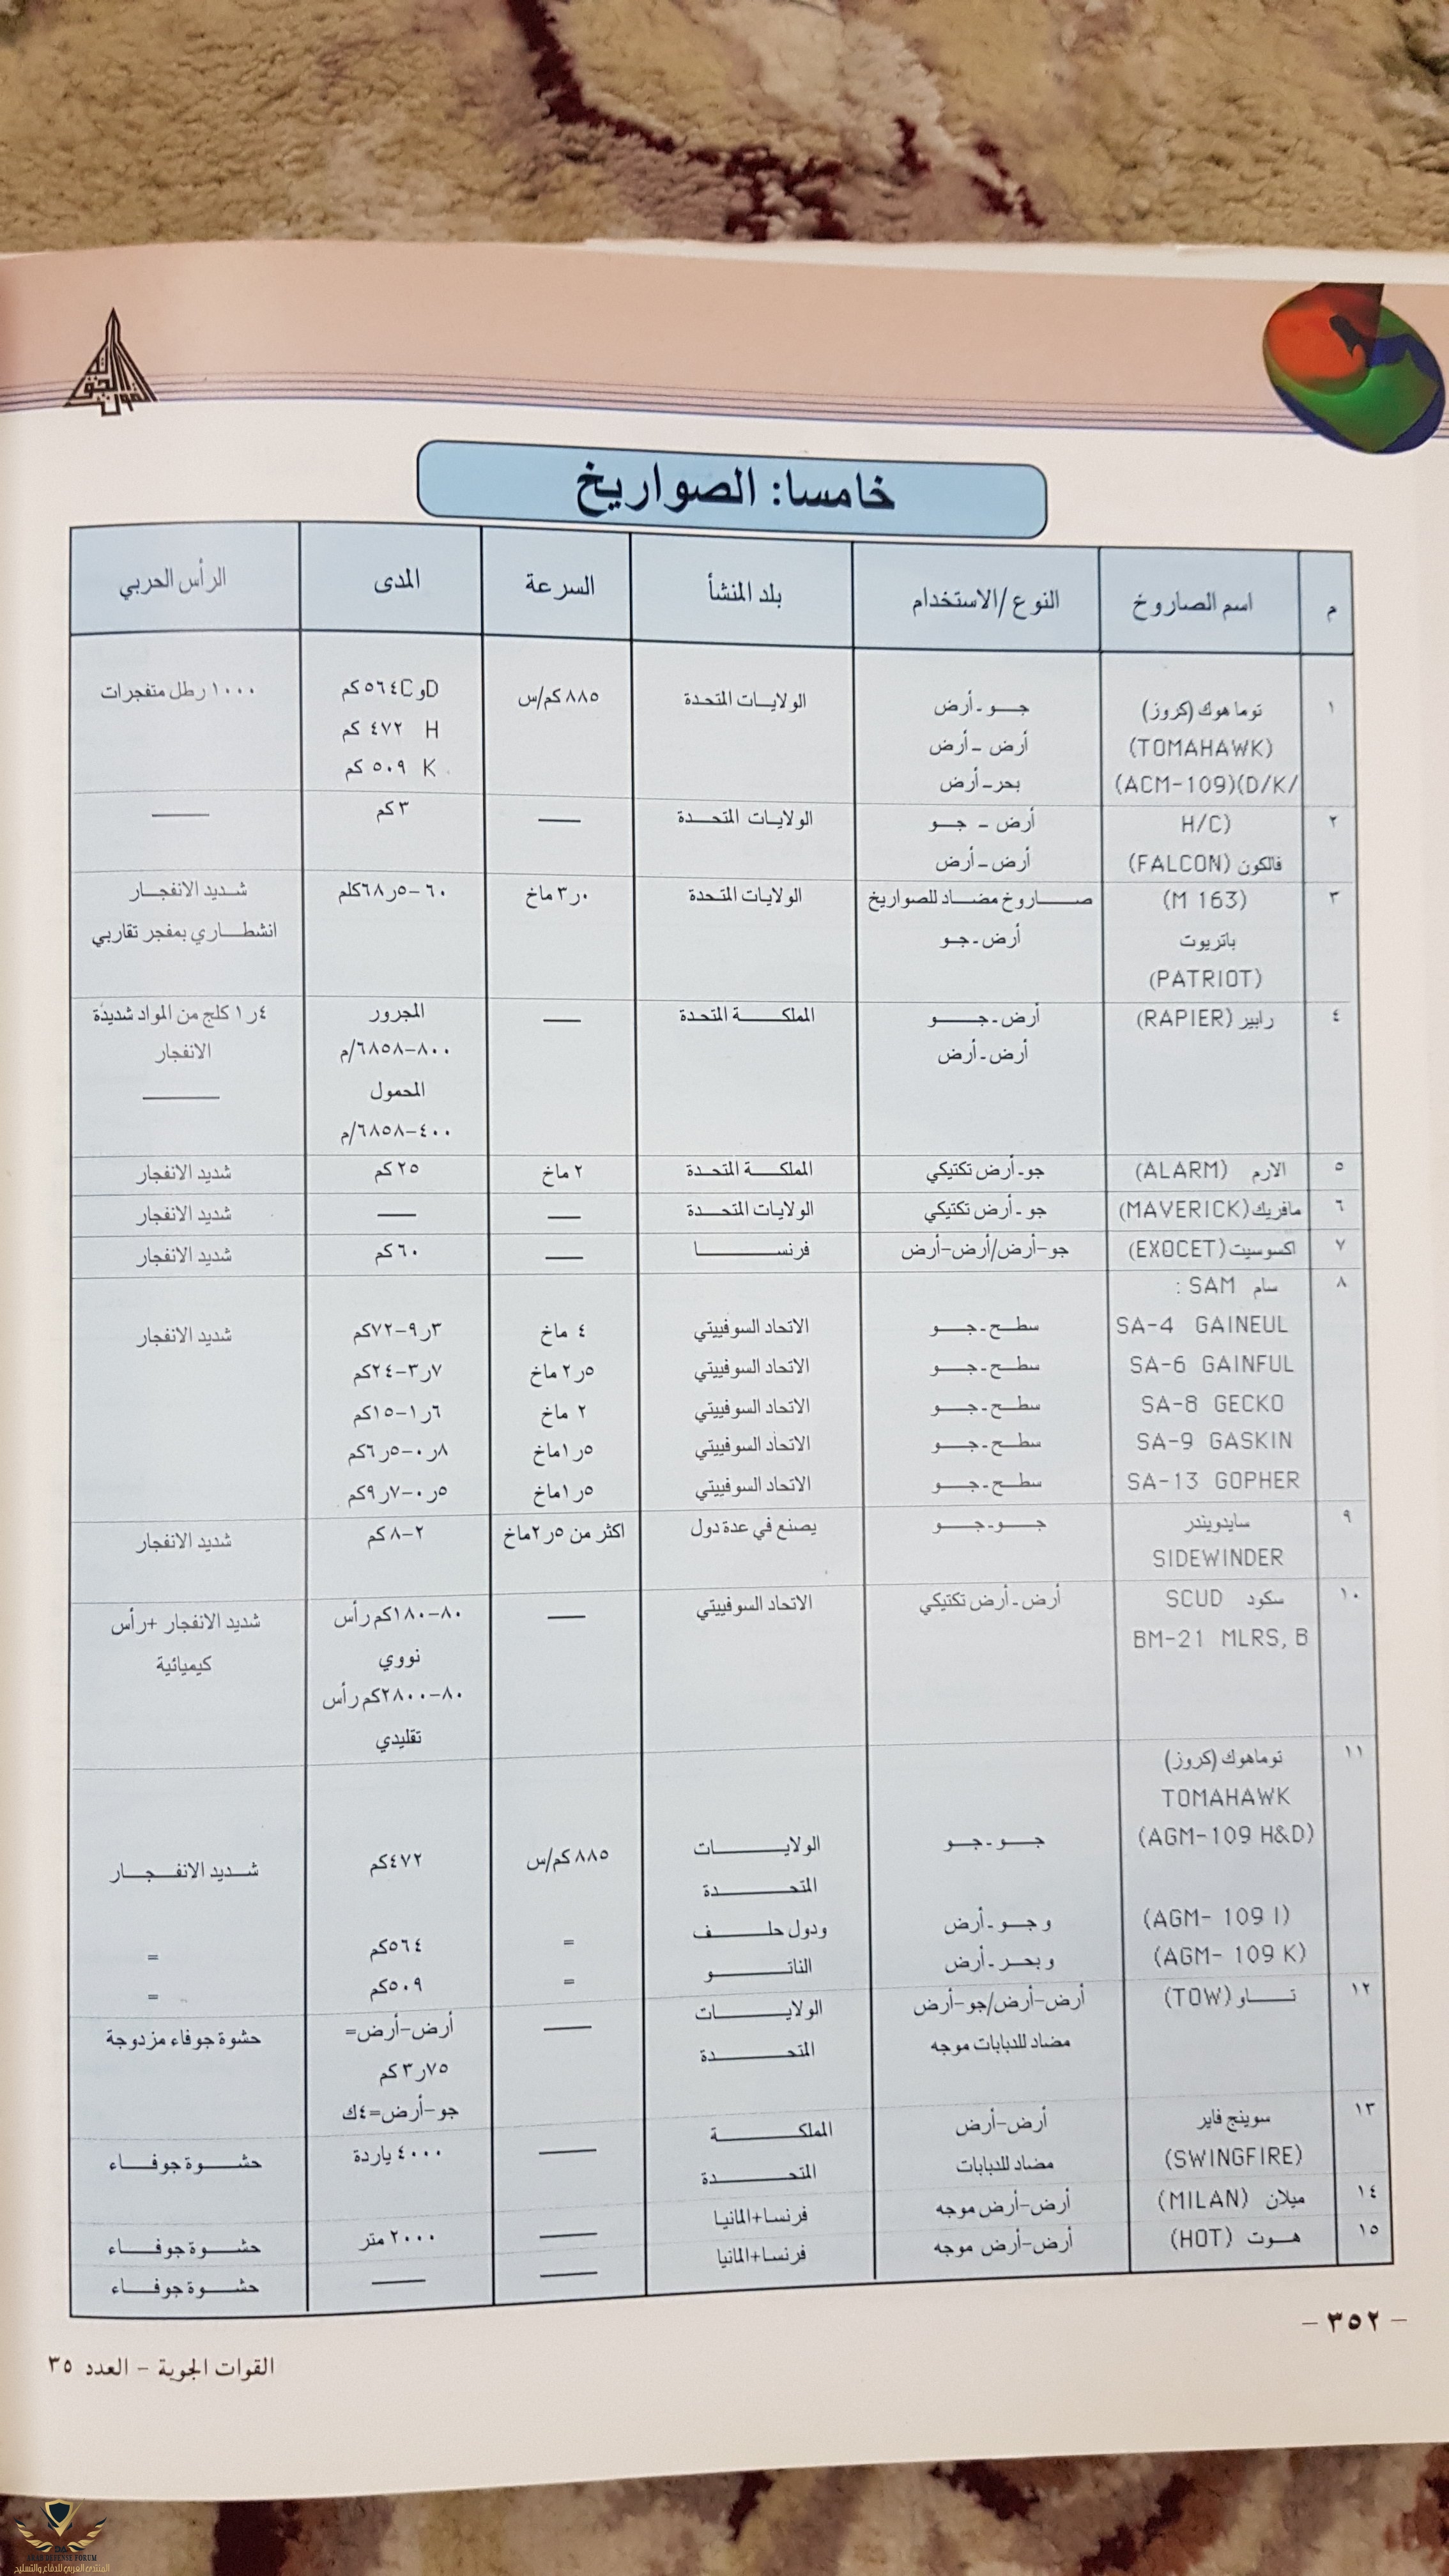 القوات الجوية
خامسا: الصواريخ
م اسم الصاروخ النوع/الاستخدام بلد المنشأ السرعة المدى الرأس الحربي
١ توماهوك (كروز) جـو-أرض الولايات المتحدة ٨٨٥ كم/س D وC ٥٦٤ كم ١٠٠٠ رطل متفجرات
(TOMAHAWK) أرض-أرض H ٤٧٢ كم
(ACM-109)(D/K/ بحر-أرض K ٥٠٩ كم
٢ H/C) أرض - جـو الولايات المتحدة —— ٣ كم ——
فالكون (FALCON) أرض-أرض
٣ (M 163) صاروخ مضاد للصواريخ الولايات المتحدة ٣ر٠ ماخ ٦٠-٦٨ر٥كلم شديد الانفجار
باتريوت أرض-جـو انشطاري بمفجر تقاربي
(PATRIOT)
٤ رابير (RAPIER) أرض-جـو المملكة المتحدة —— المجرور ١ر٤ كلج من المواد شديدة
أرض-أرض ٨٠٠-٦٨٥٨/م الانفجار
المحمول ——
٤٠٠-٦٨٥٨/م
٥ الارم (ALARM) جو-أرض تكتيكي المملكة المتحدة ٢ ماخ ٢٥ كم شديد الانفجار
٦ مافريك (MAVERICK) جو-أرض تكتيكي الولايات المتحدة —— —— شديد الانفجار
٧ اكسوسيت (EXOCET) جو-أرض/أرض-أرض فرنسا —— ٦٠ كم شديد الانفجار
٨ سام SAM :
SA-4 GAINEUL سطح-جـو الاتحاد السوفييتي ٤ ماخ ٩ر٣-٧٢كم شديد الانفجار
SA-6 GAINFUL سطح-جـو الاتحاد السوفييتي ٢ر٥ ماخ ٣ر٧-٢٤كم
SA-8 GECKO سطح-جـو الاتحاد السوفييتي ٢ ماخ ١ر٦-١٥كم
SA-9 GASKIN سطح-جـو الاتحاد السوفييتي ١ر٥ماخ ٠ر٨-٦ر٥كم
SA-13 GOPHER سطح-جـو الاتحاد السوفييتي ١ر٥ماخ ٠ر٥-٩ر٧كم
٩ سايدويندر جـو-جـو يصنع في عدة دول اكثر من ٢ر٥ماخ ٢-٨ كم شديد الانفجار
SIDEWINDER
١٠ سكود SCUD أرض-أرض تكتيكي الاتحاد السوفييتي —— ٨٠-١٨٠كم رأس شديد الانفجار +رأس
BM-21 MLRS, B نووي كيميائية
٨٠-٢٨٠٠كم رأس
تقليدي
١١ توماهوك (كروز)
TOMAHAWK
(AGM-109 H&D) جـو-جـو الولايات ٨٨٥ كم/س ٤٧٢كم شديد الانفجار
المتحدة
(AGM- 109 I) وجـو-أرض ودول حلف = ٥٦٤كم =
(AGM- 109 K) وبحر-أرض الناتو = ٥٠٩كم =
١٢ تاو (TOW) أرض-أرض/جو-أرض الولايات —— أرض-أرض= حشوة جوفاء مزدوجة
مضاد للدبابات موجه المتحدة ٣ر٧٥ كم
جو-أرض=٤ك
١٣ سوينج فاير أرض-أرض المملكة —— ٤٠٠٠ ياردة حشوة جوفاء
(SWINGFIRE) مضاد للدبابات المتحدة
١٤ ميلان (MILAN) أرض-أرض موجه فرنسا+المانيا —— ٢٠٠٠ متر حشوة جوفاء
١٥ هوت (HOT) أرض-أرض موجه فرنسا+المانيا —— —— حشوة جوفاء
- ٣٥٢ -
القوات الجوية - العدد ٣٥
ARAB DEFENSE FORUM
المنتدى العربي للدفاع والتسليح